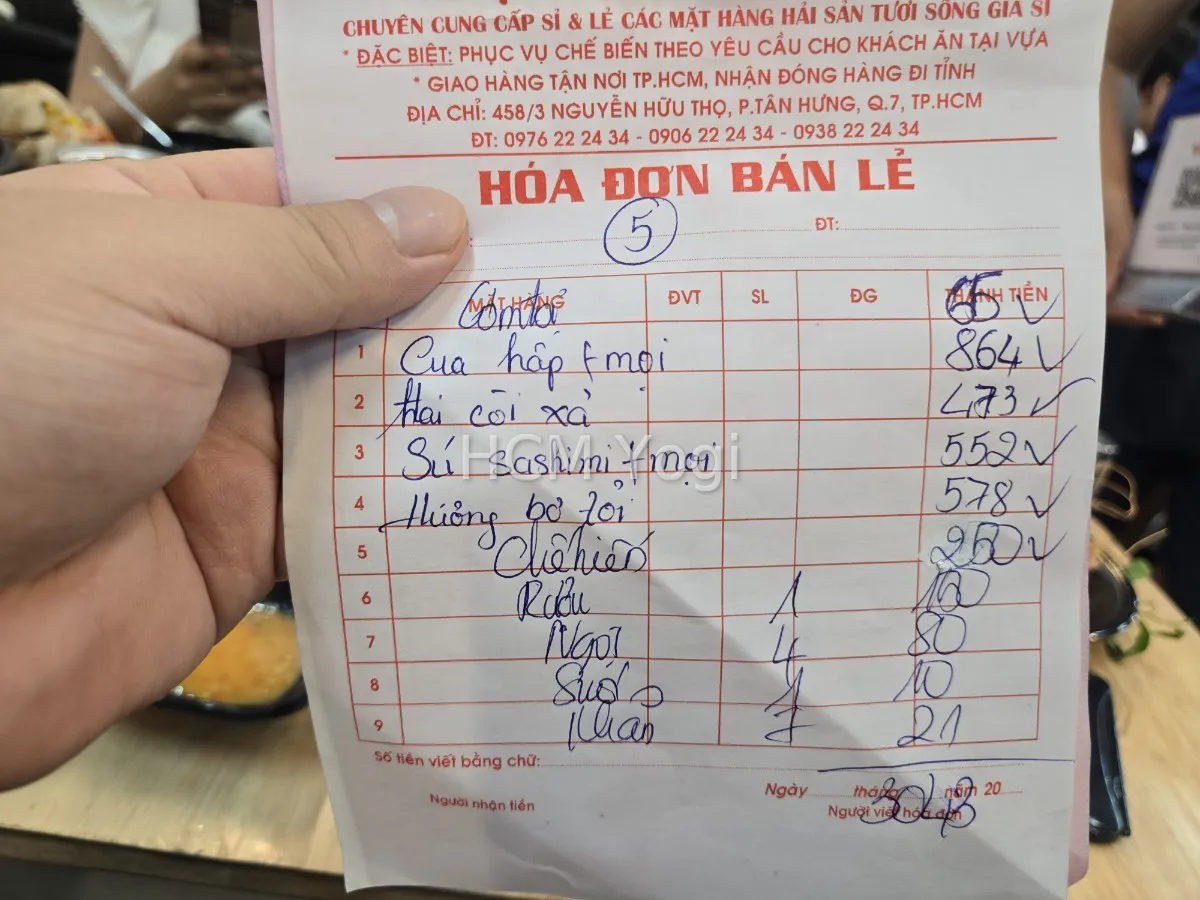 CHUYÊN CUNG CẤP SỈ & LẺ CÁC MẶT HÀNG HẢI SẢN TƯƠI SỐNG GIÁ SỈ
* ĐẶC BIỆT: PHỤC VỤ CHẾ BIẾN THEO YÊU CẦU CHO KHÁCH ĂN TẠI VỰA
* GIAO HÀNG TẬN NƠI TP.HCM, NHẬN ĐÓNG HÀNG ĐI TỈNH
ĐỊA CHỈ: 458/3 NGUYỄN HỮU THỌ, P.TÂN HƯNG, Q.7, TP.HCM
ĐT: 0976 22 24 34 - 0906 22 24 34 - 0938 22 24 34
HÓA ĐƠN BÁN LẺ
5 ĐT:
MẶT HÀNG ĐVT SL ĐG THÀNH TIỀN
Cơm tỏi 65
1 Cua hấp + mọi 864
2 Hai cồi xả 473
3 Sú sashimi + mọi 552
4 Hương bơ tỏi 578
5 Chế biến
6 Rượu 1
7 Ngọt 4 80
8 Suối 1 10
9 Khăn 7 21
Số tiền viết bằng chữ:
Ngày tháng năm 20
Người nhận tiền Người viết hóa đơn
3043
HCM Yogi